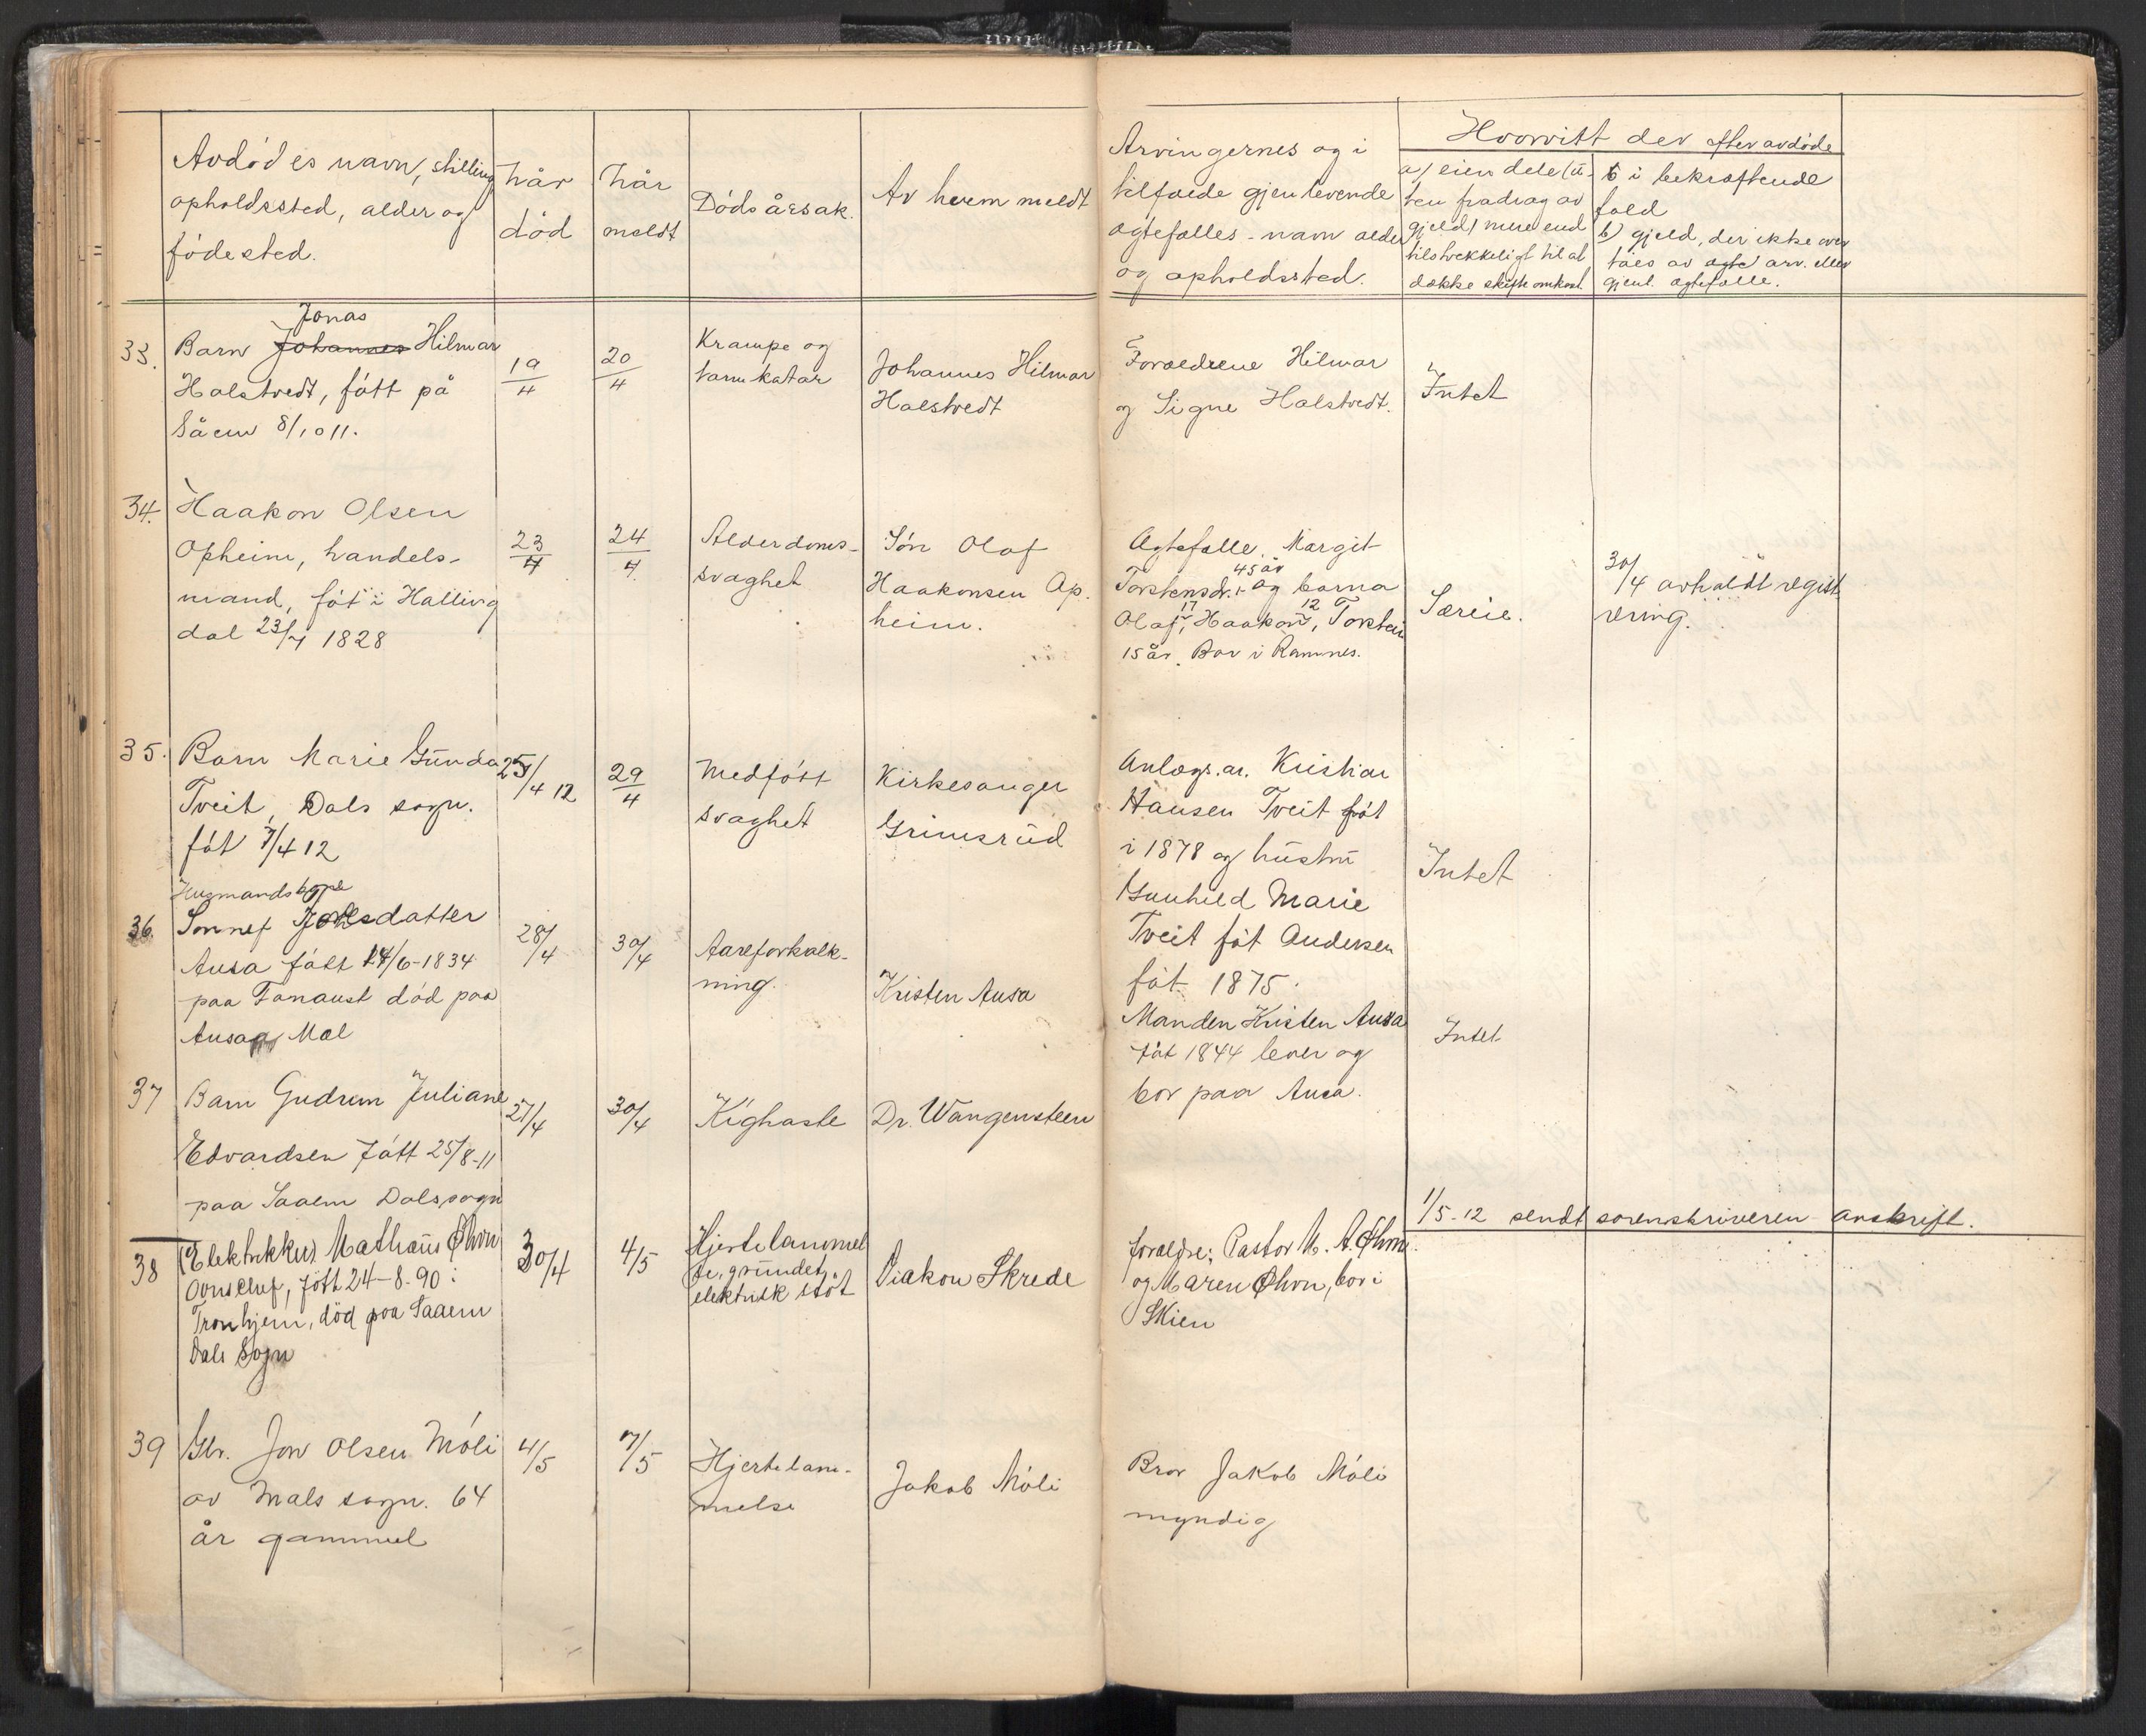 Avdødes navn, stilling
opholdssted, alder og
fødested.
når
død
når
meldt
Dødsårsak.
Av hvem meldt
Arvingernes og i
tilfælde gjenlevende
ægtefælles navn alder
og opholdssted.
Hvorvitt der efter avdøde
a) eiendele (u-
ten fradrag av
gjeld) mere end
tilstrekkeligt til at
dække skifteomkost.
i bekræftende
fald
b) gjeld, der ikke over
taes av arv. eller
gjenl. ægtefælle.
33. Barn Johannes Jonas Hilmar
Halstvedt, født på
Såem 8/10 11.
19/4
20/4
Krampe og
tarmkatar
Johannes Hilmar
Halstvedt
Forældrene Hilmar
og Signe Halstvedt.
Intet
34. Haakon Olsen
Opheim, handels-
mand, føt i Halling
dal 23/4 1828
23/4
24/4
Alderdoms-
svaghet
Søn Olaf
Haakonsen Op.
heim.
Ægtefælle. Margit
Torstensdr. 45 år og barna
Olaf 17, Haakon 12, Torstein
15 år. Bor i Ramnes.
Særeie.
30/4 avholdt regist
rering.
35. Barn Marie Gunda
Tveit, Dals sogn.
føt 7/4 12
25/4 12
29/4
Medføtt
svaghet
Kirkesanger
Grimsrud
Anlægs.ar. Kristian
Hansen Tveit føt
i 1878 og hustru
Gunhild Marie
Tveit føt Andersen
føt 1875.
Intet
36. Husmandskone
Sonnef Jonsdatter
Ausa født 14/6-1834
paa Fanaust død paa
Ausa Mæl
28/4
30/4
Aareforkalk-
ning.
Kristen Ausa
Manden Kristen Ausa
føt 1844 lever og
bor paa Ausa.
Intet
37 Barn Gudrun Juliane
Edvardsen født 25/8-11
paa Saaem Dals sogn
27/4
30/4
Kighoste
Dr. Wangensteen
1/5-12 sendt sorenskriveren avskrift.
38 Elektrikker Mathæus Øhrn
født 24-8-90 i
Tronhjem, død paa Saaem
Dals Sogn
30/4
4/5
Hjertelammel
se, grundet
elektrisk støt
Diakon Skrede
forældre: Pastor M. A. Øhrn
og Maren Øhrn, bor i
Skien
39 Gbr. Jon Olsen Møli
av Mæls sogn. 64
år gammel
4/5
7/5
Hjertelam-
melse
Jakob Møli
Bror Jakob Møli
myndig